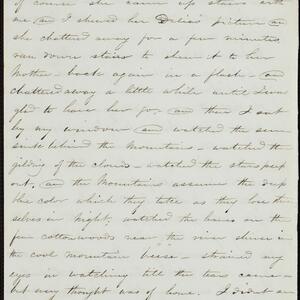 of course she came up stairs with
me and I showed her Delia's picture and
she chattered away for a few minutes
ran down stairs to show it to her
Mother back again in a flash - and
chattered away a little while until I was
glad to have her go. and then I sat
by my window and watched the sun
sink behind the mountains - watched the
gilding of the clouds - watched the stars peep
out, and the Mountains assume the deep
blue color which they take as they lose them
selves in night; watched the leaves on the
few cottonwoods near the river shiver in
the cool mountain breeze - strained my
eyes in watching till the tears came -
but every thought was of home. I didn't